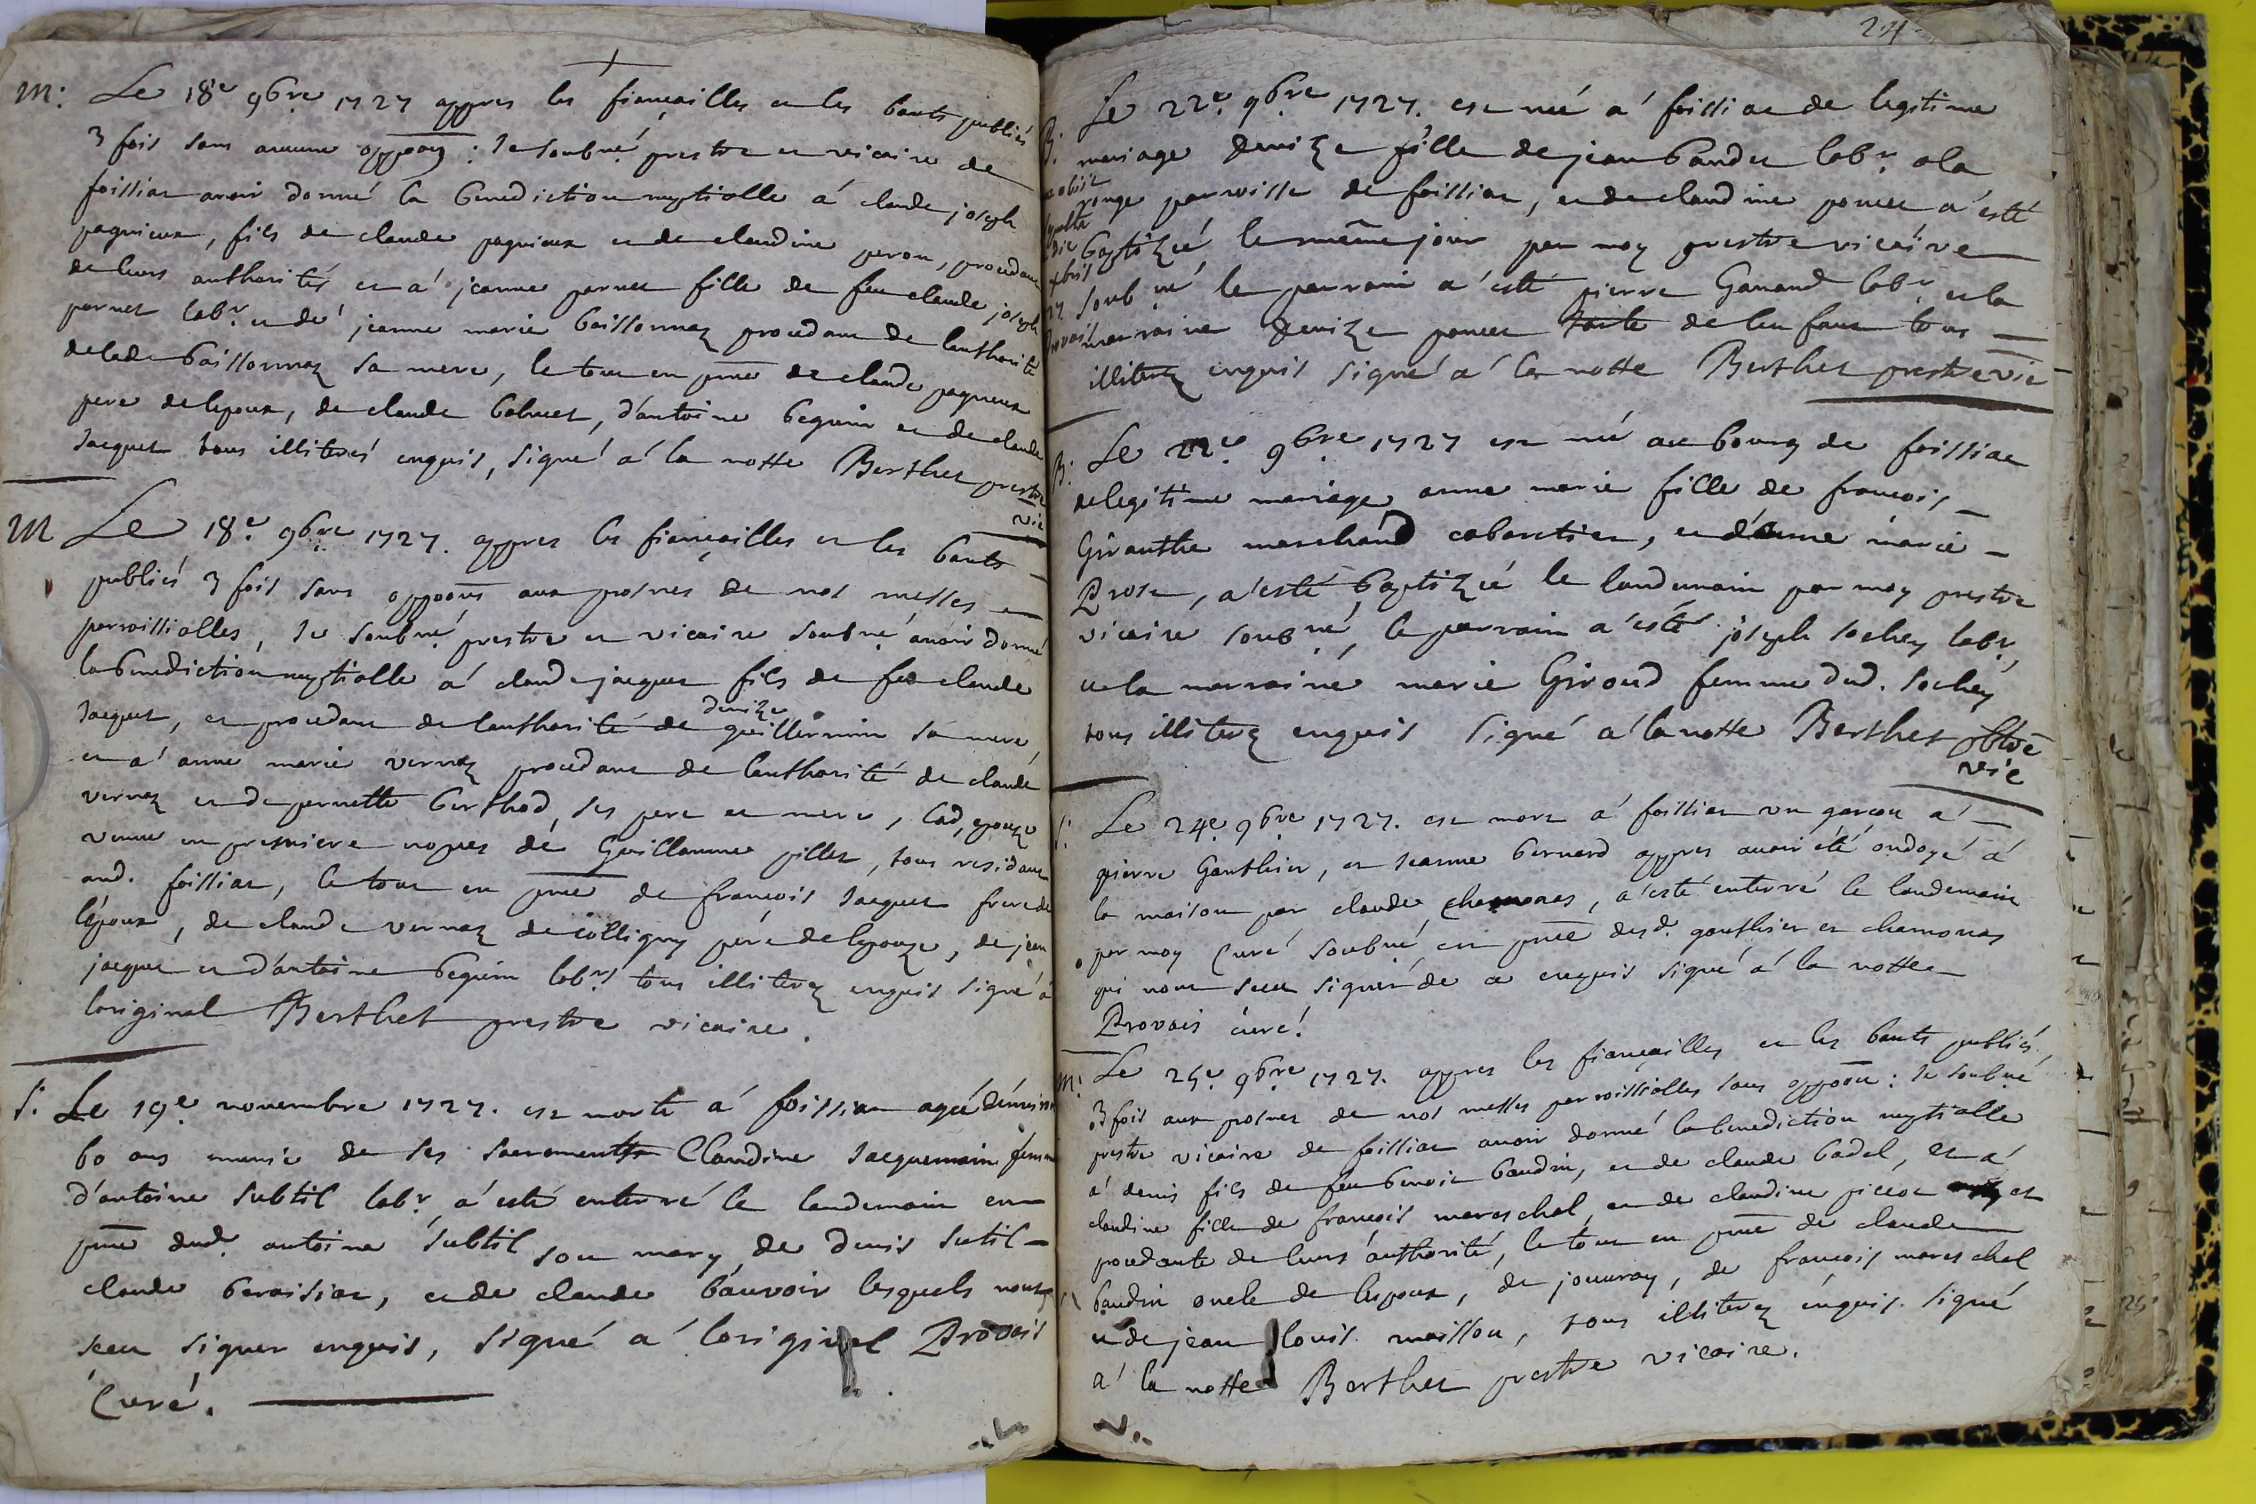 M: Le 18e 9bre 1727 appres les fiançailles et les bants publiés
3 fois sans aucune oppoon: Je soubné prestre et vicaire de
foissiat avoir donné la benediction nuptialle á claude joseph
pagnieux, fils de claude pagnieux et de claudine peron, procedant
de leurs authorités et a' jeanne pernet fille de feu claude joseph
pernet labr. et de jeanne marie baissonnaz procedant de lauthorité
de lade baissonnaz sa mere, le tout en pnce de claude pagnieux
pere de lepoux, de claude Cabuet, d'antoine beguin et de claude
Jacquet tous illiterés enquis, signé á la notte Berthet prestre
vic
M Le 18e. 9bre 1727. appres les fiançailles et les bants
publiés 3 fois sans oppoons aux prosnes de nos messes
parroissialles, Je soubné prestre et vicaire soubné avoir donné
la benediction nuptialle á claude jacquet fils de feu claude
denize
Jacquet, et procedant de lauthorité de guillermin sa mere,
et a' anne marie vernaz procedant de lauthorité de claude
vernaz et de pernette berthod, ses pere et mere, lad, epouze
veuve en premiere nopces de Guillaume pillet, tous residants
aud. foissiat, le tout en pnce de francois Jacquet frere de
lépoux, de claude vernaz de colligny pére de lepouze, de jean
jacquet et d'antoine beguin labrs tous illiterez enquis signé á
loriginal Berthet prestre vicaire.
S: Le 19e. novembre 1727. est morte á foissiat agée denviron
60 ans munie de ses sacrements Claudine Jacquemain femme
d'antoine subtil labr. á esté enterré le lendemain en
pnce dud. antoine subtil son mary, de denis sutil
claude beraisiat, et de claude bauvoir lesquels nont
sceu signer enquis, signé á loriginal Provais
Curé.
24
B: Le 22e. 9bre 1727. est née a' foissiat de legitime
mariage denize fille de jean bandet labr. a la
rouge parroisse de foissiat, et de claudine poncet a' esté
baptizeé le même jour par moy prestre vicaire
soubné le parrain a' esté pierre Ganand labr. et la
marraine denize poncet de leu fant tous
illiterez enquis signé a' la notte Berthet prestre vic
B: Le 22e. 9bre 1727 est née au bourg de foissiat
de legitime mariage anne marie fille de francois
Giranthe marchand cabaretier, et d'anne marie
Prost, a' esté baptizeé le landemain par moy prestre
vicaire soubné, le parrain a' esté joseph sochey labr,
et la marraine marie Giroud femme dud. sochey
tous illiterez enquis signé a' la notte Berthet pbtre
vic
S: Le 24e 9bre 1727. est mort a' foissiat un garçon a'
pierre Gauthier, et Jeanne bernard appres avoir été ondoyé á
la maison par claude chamonas, a' esté enterré le landemain
par moy Curé soubné en pnce desd. gauthier et chamonas
qui nont sceu signer de ce enquis signé a' la notte
Provais curé!
M: Le 25e. 9bre 1727. appres les fiançailles et les bants publiés
3 fois aux prosnes de nos messes parroissialles sans oppoon: Je soubné
prestre vicaire de foissiat avoir donné la benediction nuptialle
a' denis fils de feu benoit baudin, et de claude badel, et a'
claudine fille de françois mareschal, et de claudine picot et
procedante de leurs authorité, le tout en pnce de claude
baudin oncle de lepoux, de jouvray, de francois mareschal
et de jean louis moisson, tous illiterez enquis. signé
a' la notte Berthet prestre vicaire.